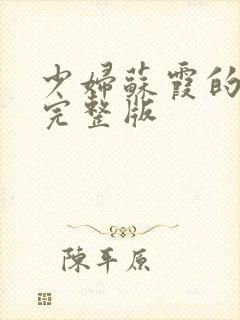 少婦蘇霞的
完整版
陳平原